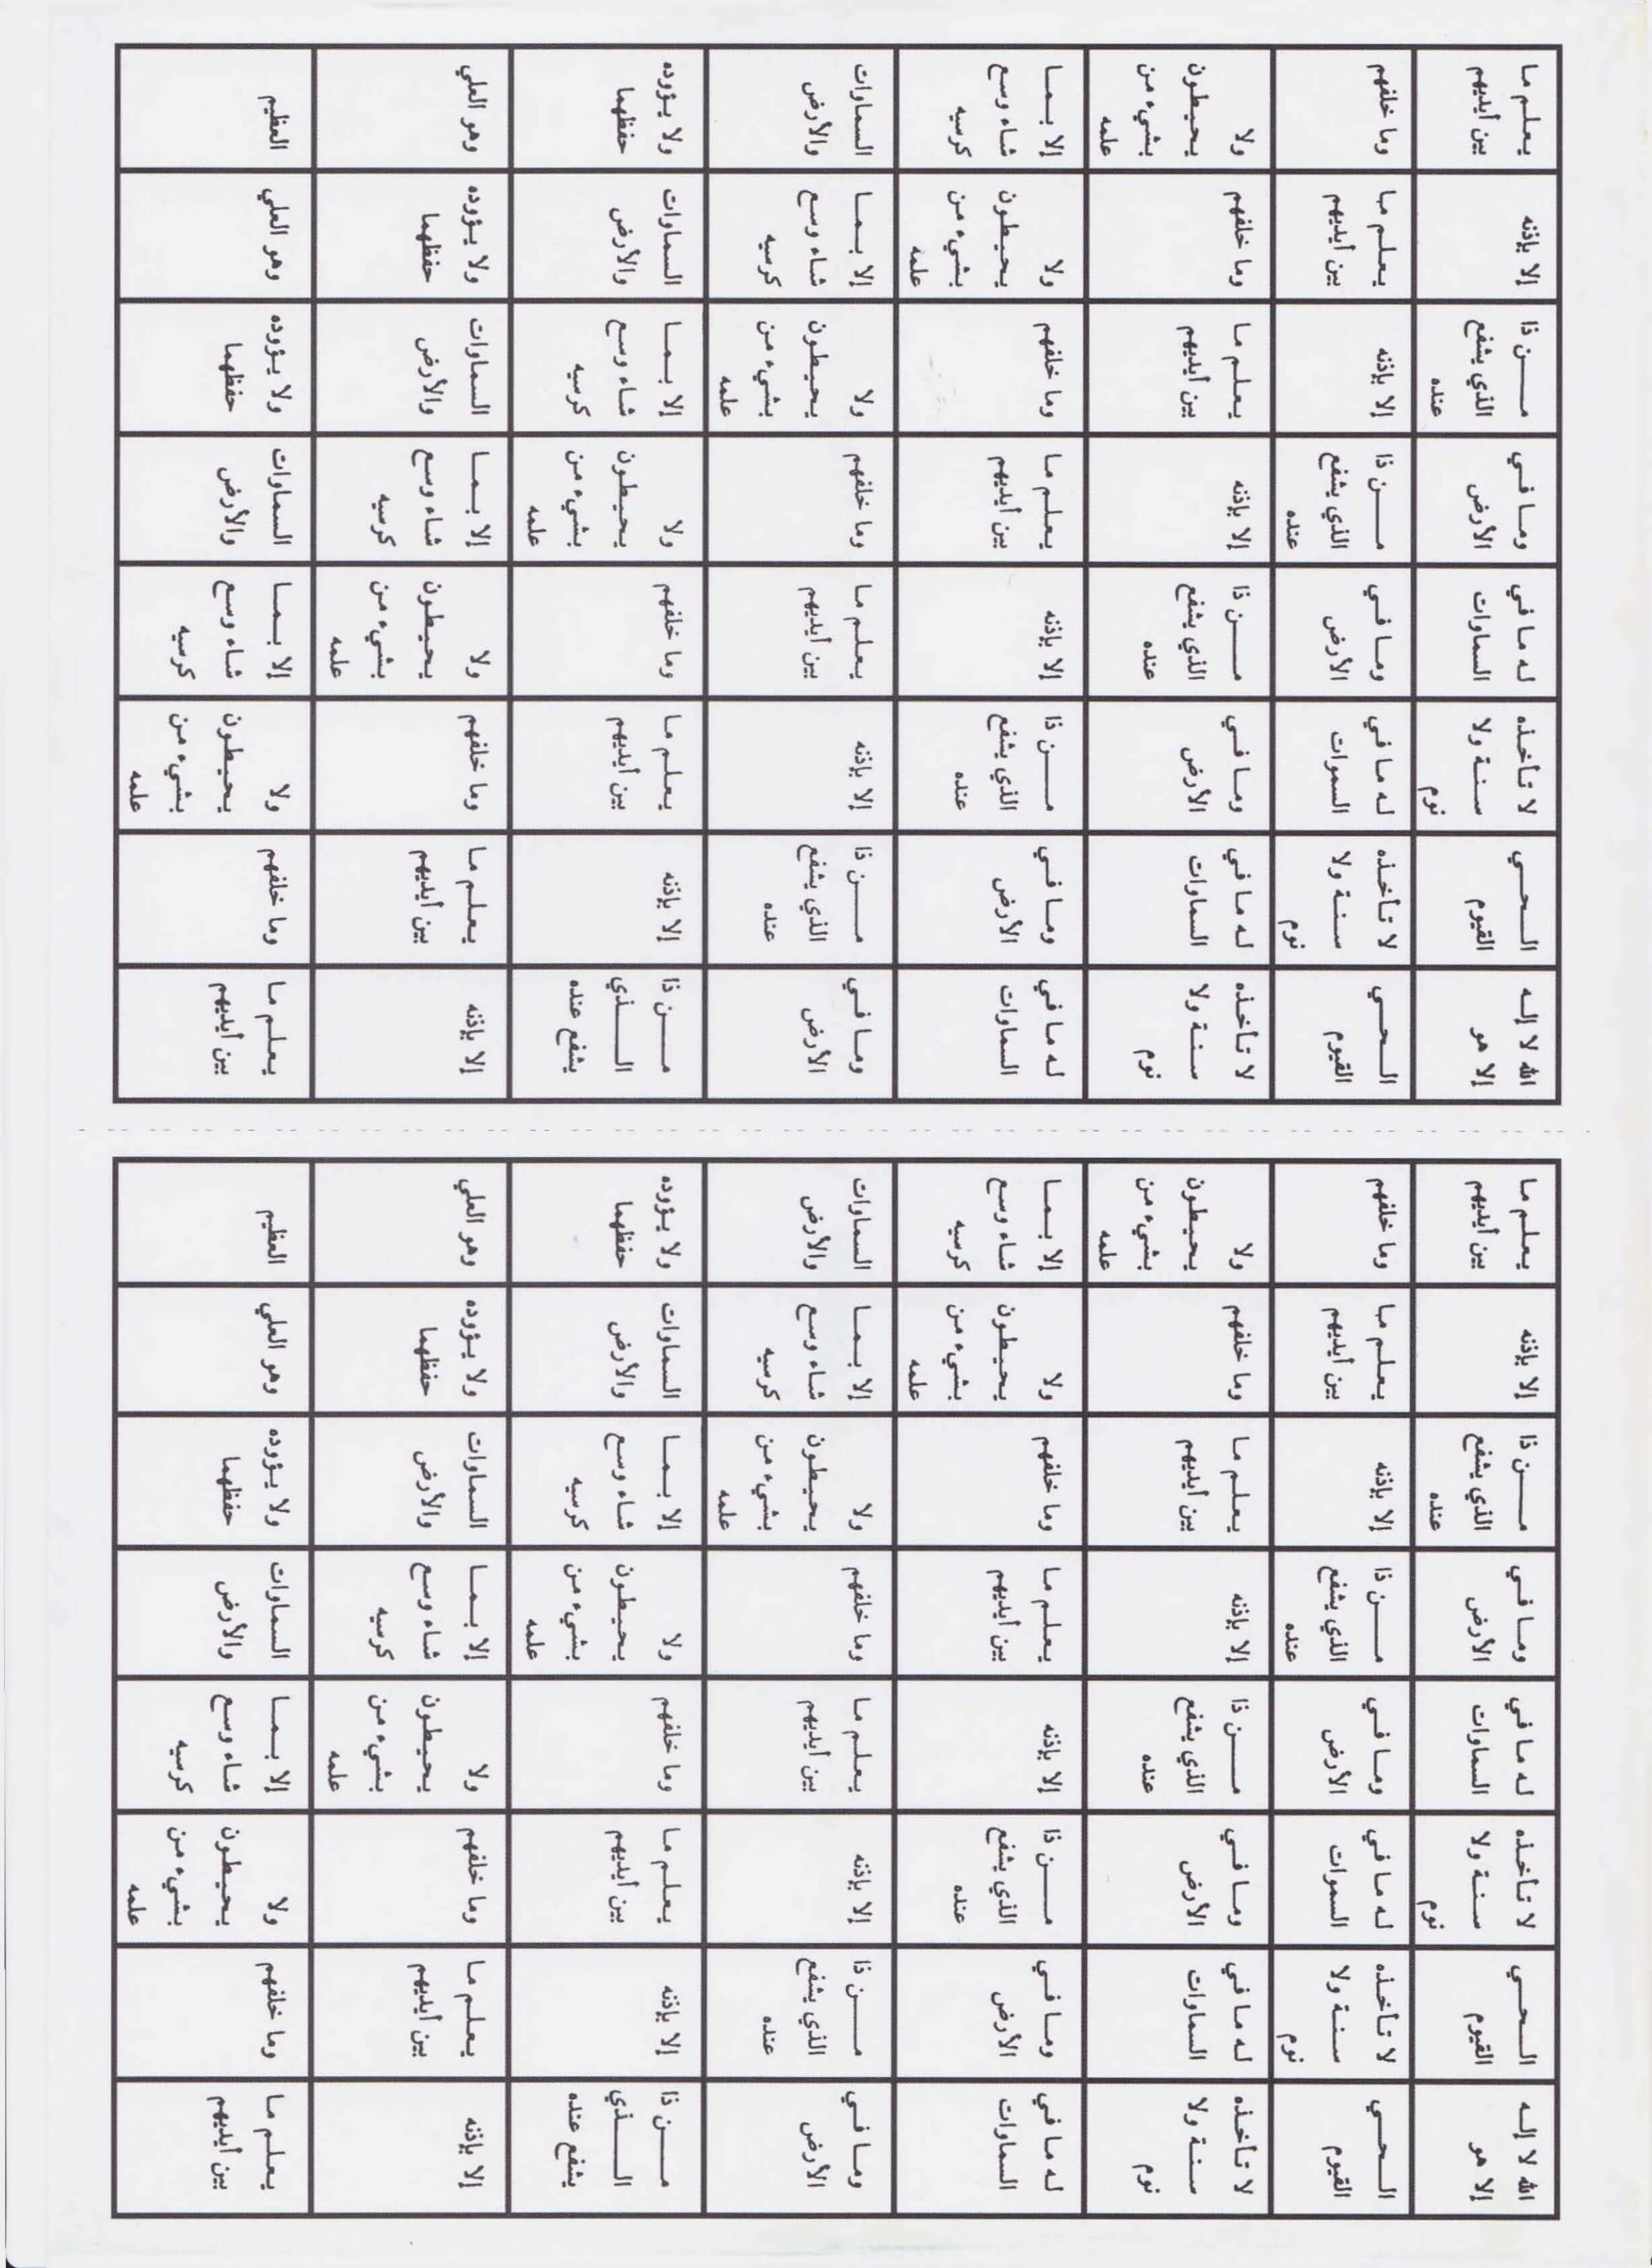 الله لا إله
إلا هو
الحي
القيوم
لا تأخذه
سنة ولا
نوم
له ما في
السماوات
وما في
الأرض
من ذا
الذي يشفع
عنده
إلا بإذنه
يعلم ما
بين أيديهم
الحي
القيوم
لا تأخذه
سنة ولا
نوم
له ما في
السموات
وما في
الأرض
من ذا
الذي يشفع
عنده
إلا بإذنه
يعلم ما
بين أيديهم
وما خلفهم
لا تأخذه
سنة ولا
نوم
له ما في
السماوات
وما في
الأرض
من ذا
الذي يشفع
عنده
إلا بإذنه
يعلم ما
بين أيديهم
وما خلفهم
ولا
يحيطون
بشيء من
علمه
له ما في
السماوات
وما في
الأرض
من ذا
الذي يشفع
عنده
إلا بإذنه
يعلم ما
بين أيديهم
وما خلفهم
ولا
يحيطون
بشيء من
علمه
إلا بما
شاء وسع
كرسيه
وما في
الأرض
من ذا
الذي يشفع
عنده
إلا بإذنه
يعلم ما
بين أيديهم
وما خلفهم
ولا
يحيطون
بشيء من
علمه
إلا بما
شاء وسع
كرسيه
السماوات
والأرض
من ذا
الذي
يشفع عنده
إلا بإذنه
يعلم ما
بين أيديهم
وما خلفهم
ولا
يحيطون
بشيء من
علمه
إلا بما
شاء وسع
كرسيه
السماوات
والأرض
ولا يؤوده
حفظهما
إلا بإذنه
يعلم ما
بين أيديهم
وما خلفهم
ولا
يحيطون
بشيء من
علمه
إلا بما
شاء وسع
كرسيه
السماوات
والأرض
ولا يؤوده
حفظهما
وهو العلي
يعلم ما
بين أيديهم
وما خلفهم
ولا
يحيطون
بشيء من
علمه
إلا بما
شاء وسع
كرسيه
السماوات
والأرض
ولا يؤوده
حفظهما
وهو العلي
العظيم
الله لا إله
إلا هو
الحي
القيوم
لا تأخذه
سنة ولا
نوم
له ما في
السماوات
وما في
الأرض
من ذا
الذي يشفع
عنده
إلا بإذنه
يعلم ما
بين أيديهم
الحي
القيوم
لا تأخذه
سنة ولا
نوم
له ما في
السموات
وما في
الأرض
من ذا
الذي يشفع
عنده
إلا بإذنه
يعلم ما
بين أيديهم
وما خلفهم
لا تأخذه
سنة ولا
نوم
له ما في
السماوات
وما في
الأرض
من ذا
الذي يشفع
عنده
إلا بإذنه
يعلم ما
بين أيديهم
وما خلفهم
ولا
يحيطون
بشيء من
علمه
له ما في
السماوات
وما في
الأرض
من ذا
الذي يشفع
عنده
إلا بإذنه
يعلم ما
بين أيديهم
وما خلفهم
ولا
يحيطون
بشيء من
علمه
إلا بما
شاء وسع
كرسيه
وما في
الأرض
من ذا
الذي يشفع
عنده
إلا بإذنه
يعلم ما
بين أيديهم
وما خلفهم
ولا
يحيطون
بشيء من
علمه
إلا بما
شاء وسع
كرسيه
السماوات
والأرض
من ذا
الذي
يشفع عنده
إلا بإذنه
يعلم ما
بين أيديهم
وما خلفهم
ولا
يحيطون
بشيء من
علمه
إلا بما
شاء وسع
كرسيه
السماوات
والأرض
ولا يؤوده
حفظهما
إلا بإذنه
يعلم ما
بين أيديهم
وما خلفهم
ولا
يحيطون
بشيء من
علمه
إلا بما
شاء وسع
كرسيه
السماوات
والأرض
ولا يؤوده
حفظهما
وهو العلي
يعلم ما
بين أيديهم
وما خلفهم
ولا
يحيطون
بشيء من
علمه
إلا بما
شاء وسع
كرسيه
السماوات
والأرض
ولا يؤوده
حفظهما
وهو العلي
العظيم